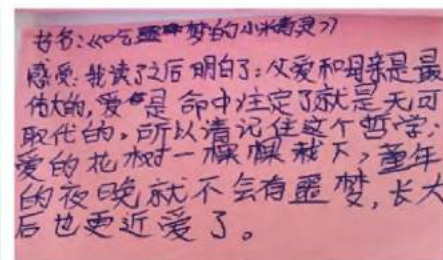 书名:《吃噩梦的小精灵》
感受:我读了之后明白了:父爱和母亲是最
伟大的,爱是命中注定了就是无可
取代的。所以请记住这个哲学,
爱的花树一棵棵栽下,童年
的夜晚就不会有噩梦,长大
后也更近爱了。